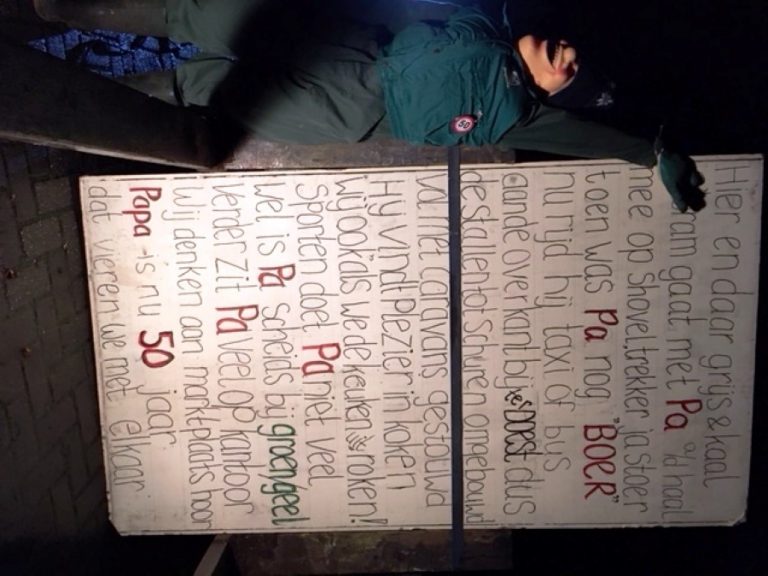 50
Hier en daar grijs & kaal
gaat met Pa a/d haal
mee op shovel, trekker ja stoer
toen was Pa nog "BOER"
nu rijd hij taxi of bus
aan de overkant bij SOEST dus
de stallen tot schuren omgebouwd
vol met caravans gestouwd
Hij vindt plezier in koken
wij ook als we de keuken roken!
Sporten doet Pa niet veel
wel is Pa scheids bij groen/geel
verder zit Pa veel op kantoor
wij denken aan marktplaats hoor
Papa is nu 50 jaar
dat vieren we met elkaar